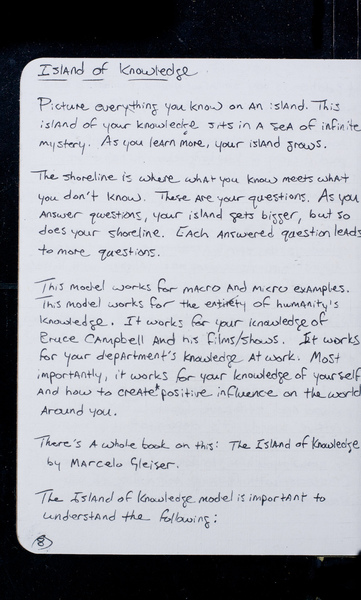 Island of Knowledge
Picture everything you know on an island. This
island of your knowledge sits in a sea of infinite
mystery. As you learn more, your island grows.
The shoreline is where what you know meets what
you don't know. These are your questions. As you
answer questions, your island gets bigger, but so
does your shoreline. Each answered question leads
to more questions.
This model works for macro and micro examples.
This model works for the entirety of humanity's
knowledge. It works for your knowledge of
Bruce Campbell and his films/shows. It works
for your department's knowledge at work. Most
importantly, it works for your knowledge of yourself
and how to create positive influence on the world
around you.
There's a whole book on this: The Island of Knowledge
by Marcelo Gleiser.
The Island of Knowledge model is important to
understand the following:
8